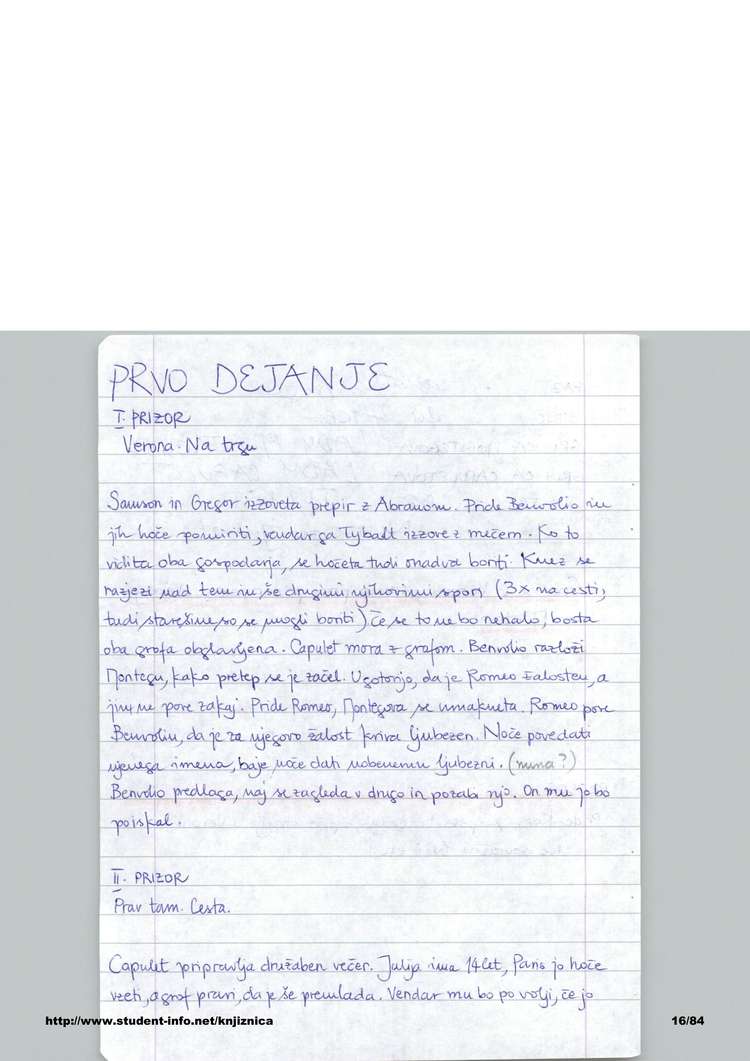 PRVO DEJANJE
I. PRIZOR
Verona. Na trgu
Samson in Gregor izzoveta prepir z Abramom. Pride Benvolio in
jih hoče pomiriti, vendar ga Tybalt izzove z mečem. Ko to
vidita oba gospodarja, se hočeta tudi onadva boriti. Knez se
razjezi nad tem in še drugimi njihovimi spori (3x na cesti,
tudi starešine so se mogli boriti) Če se to ne bo nehalo, bosta
oba grofa obglavljena. Capulet mora z grofom. Benvolio razloži
Montegu, kako pretep se je začel. Ugotovijo, da je Romeo žalosten, a
jim ne pove zakaj. Pride Romeo, Montegova se umakneta. Romeo pove
Benvoliu, da je za njegovo žalost kriva ljubezen. Noče povedati
njenega imena, baje noče dati nobenemu ljubezni. (nuna?)
Benvolio predlaga, naj se zagleda v drugo in pozabi njo. On mu jo bo
poiskal.
II. PRIZOR
Prav tam. Cesta.
Capulet pripravlja družaben večer. Julija ima 14 let, Paris jo hoče
vzeti, a grof pravi, da je še premlada. Vendar mu bo po volji, če jo
http://www.student-info.net/knjiznica
16/84